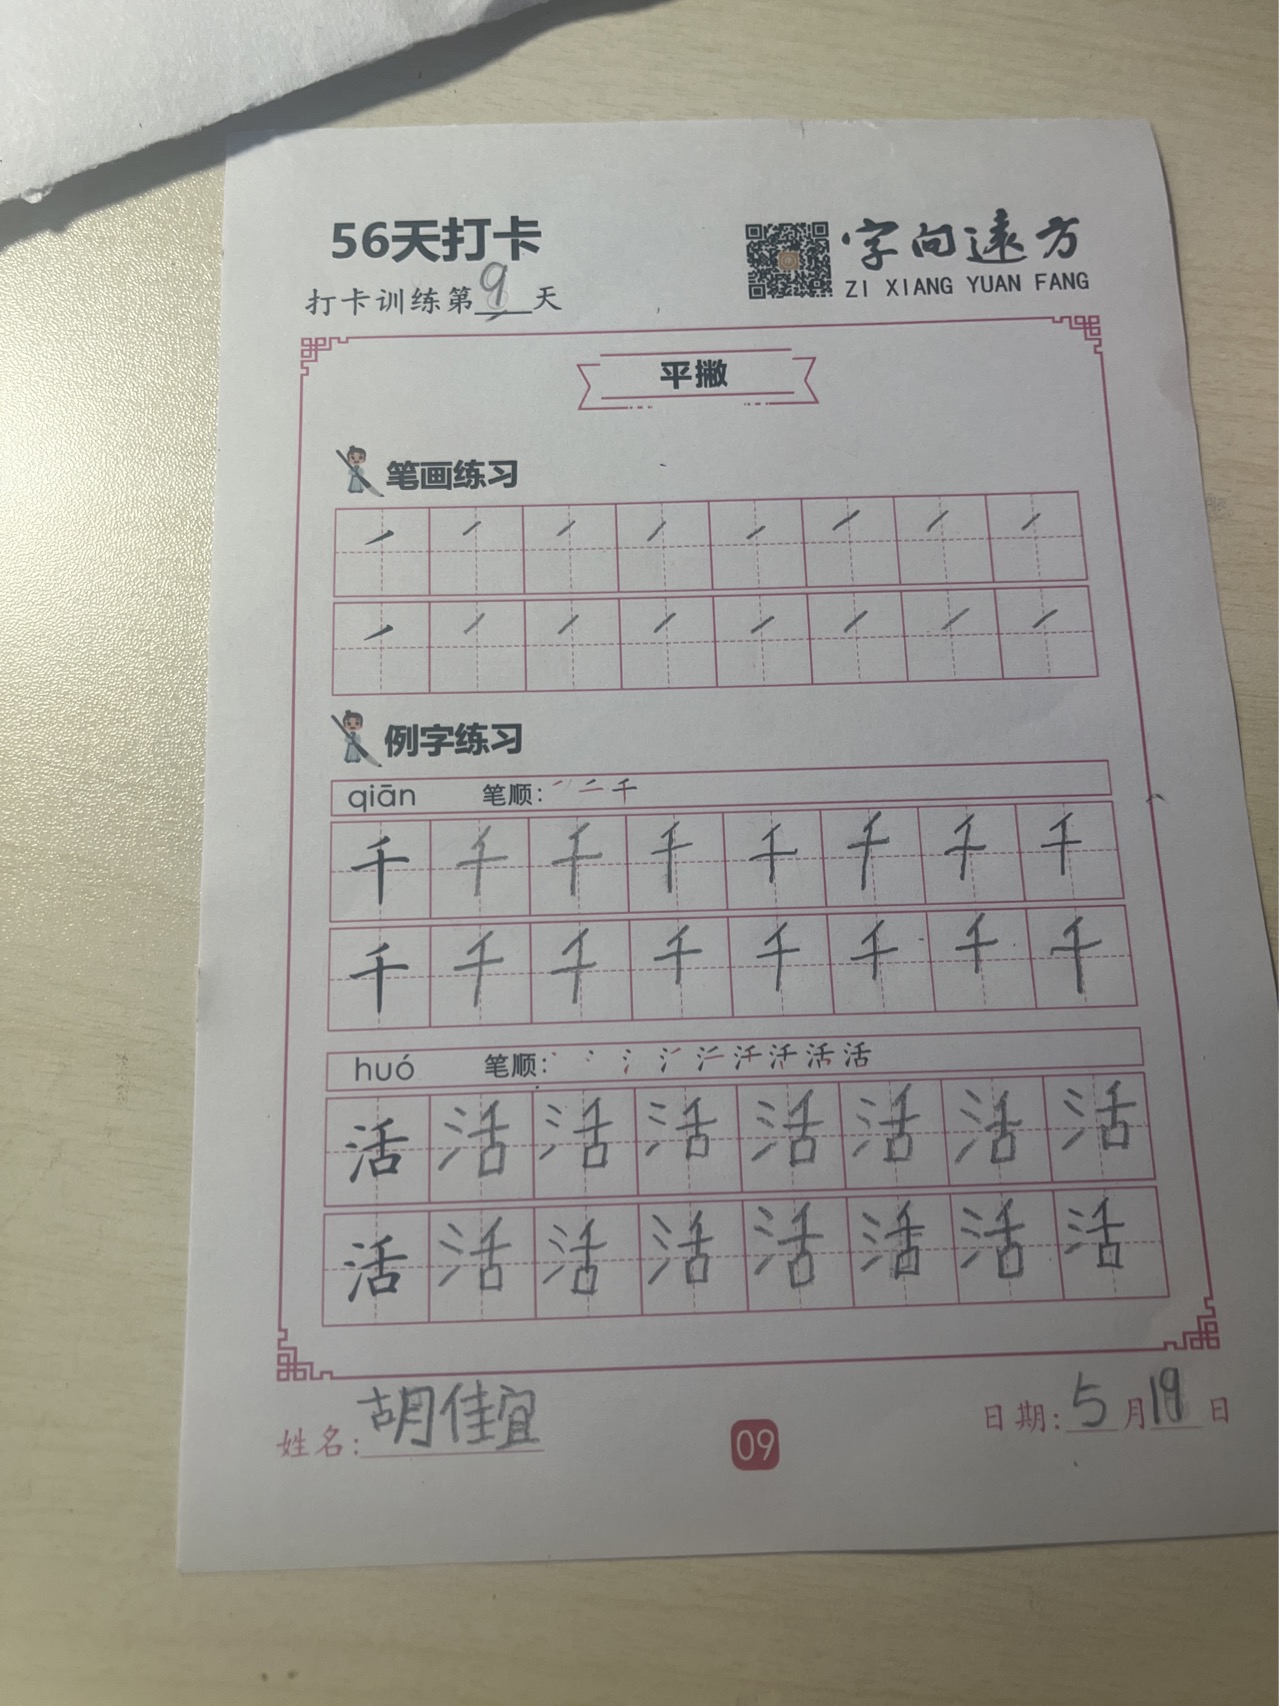 56天打卡
字向遠方
打卡训练第9天
ZI XIANG YUAN FANG
平撇
笔画练习
例字练习
qiān 笔顺: 丿 二 千
千 千 千 千 千 千 千 千
千 千 千 千 千 千 千 千
huó 笔顺: 活
活 活 活 活 活 活 活 活
活 活 活 活 活 活 活 活
姓名: 胡佳宜
09
日期: 5月19日